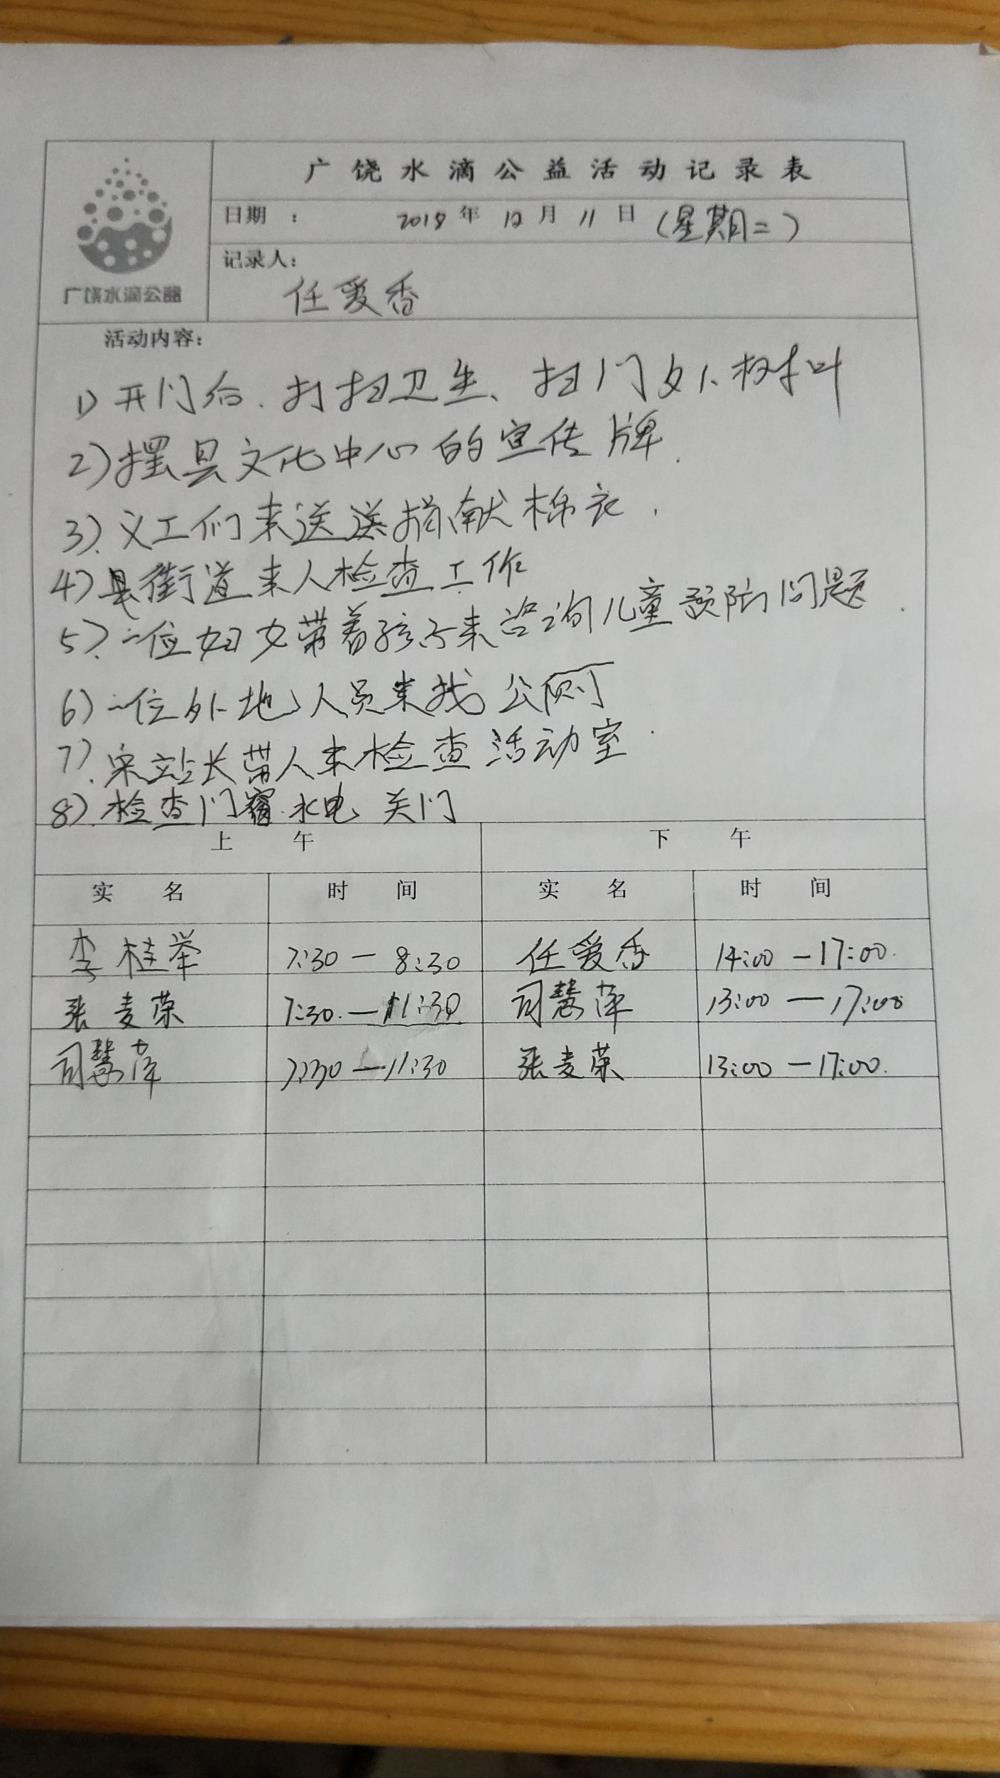 广饶水滴公益活动记录表
广饶水滴公益
日期 : 2018年12月11日(星期二)
记录人:
任爱香
活动内容:
1)开门后.打扫卫生、扫门外树叶
2)摆县文化中心的宣传牌.
3).义工们来送送捐献棉衣.
4)县街道来人检查工作
5).一位妇女带着孩子来咨询儿童预防问题.
6)一位外地人员来找公厕
7).宋站长带人来检查活动室.
8).检查门窗.水电 关门
上 午 下 午
实 名 时 间 实 名 时 间
李桂举 7:30—8:30 任爱香 14:00—17:00.
张麦荣 7:30.—11:30 司慧萍 13:00—17:00
司慧萍 7:30—11:30 张麦荣 13:00—17:00.